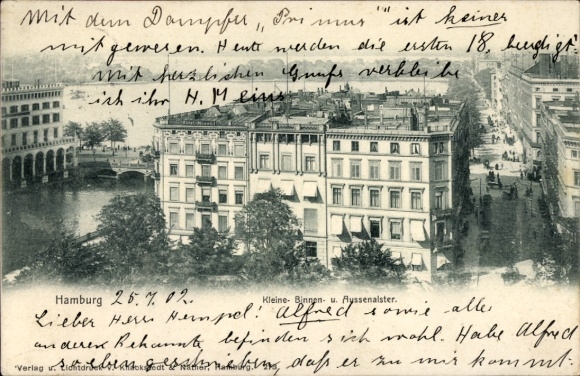 Mit dem Dampfer „Primus" ist keiner
mitgewesen. Heute werden die ersten 18. beerdigt.
Mit herzlichen Gruß verbleibe
ich ihr H. Meins
Hamburg 25.7.02.
Kleine- Binnen- u. Aussenalster.
Lieber Herr Hempel! Alfred sowie alle
anderen Bekannte befinden sich wohl. Habe Alfred
soeben geschrieben, daß er zu mir kommt.
Verlag u. Lichtdruck v. Knackstedt & Näther, Hamburg.